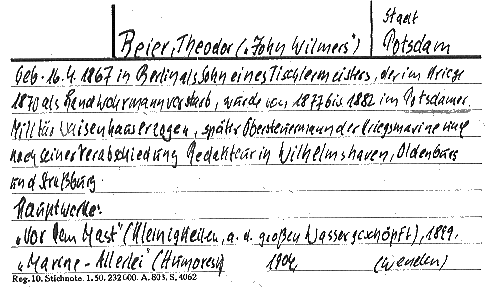 Stadt
Beier, Theodor („John Wilmers") Potsdam
Geb. 16.4.1867 in Berlin als Sohn eines Tischlermeisters, der im Kriege
1870 als Landwehrmann verstarb, wurde von 1877 bis 1882 im Potsdamer
Militär Waisenhaus erzogen, später Obersteuermann der Kriegsmarine und
nach seiner Verabschiedung Redakteur in Wilhelmshaven, Oldenburg
und Straßburg.
Hauptwerke:
„Vor dem Mast" (Kleinigkeiten, a. d. großen Wasser geschöpft), 1899.
„Marine-Allerlei" (Humoresk) 1904 (Wenden)
Reg. 10. Stichnote. 1. 50. 232000. A. 803. S. 4062